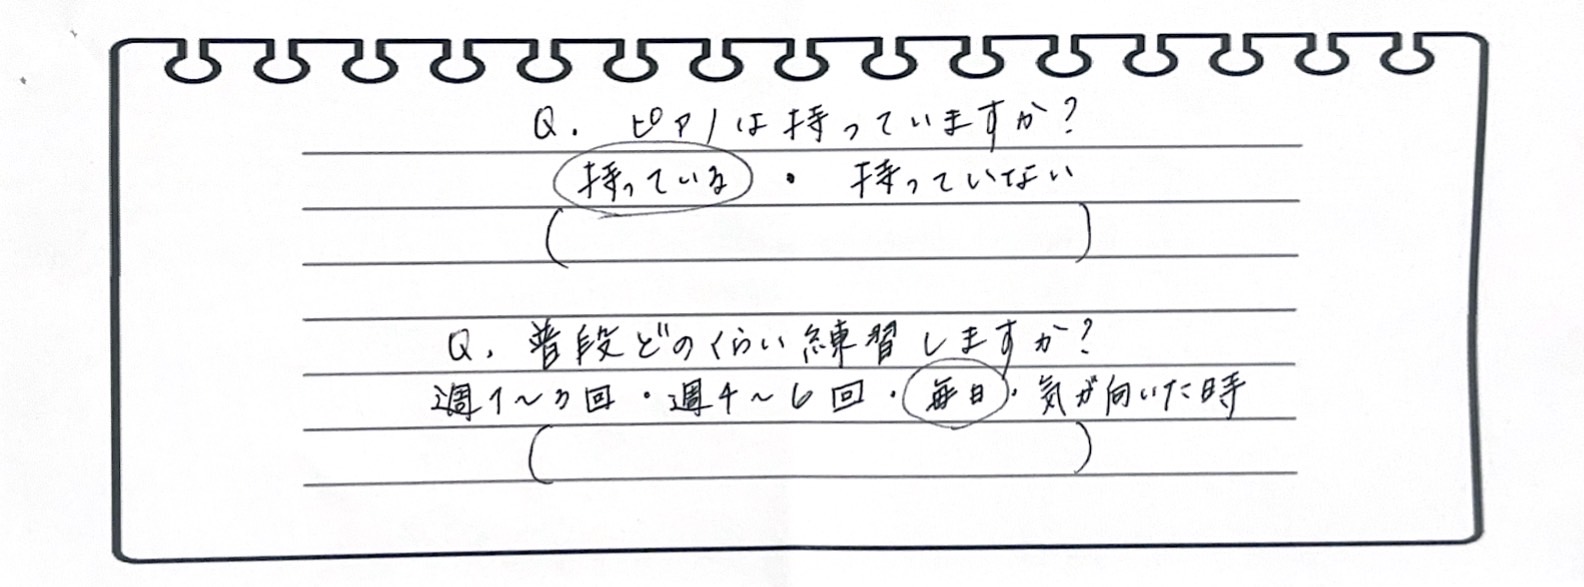 Q. ピアノは持っていますか?
持っている ・ 持っていない
(                    )
Q. 普段どのくらい練習しますか?
週1〜3回・週4〜6回・毎日・気が向いた時
(                    )